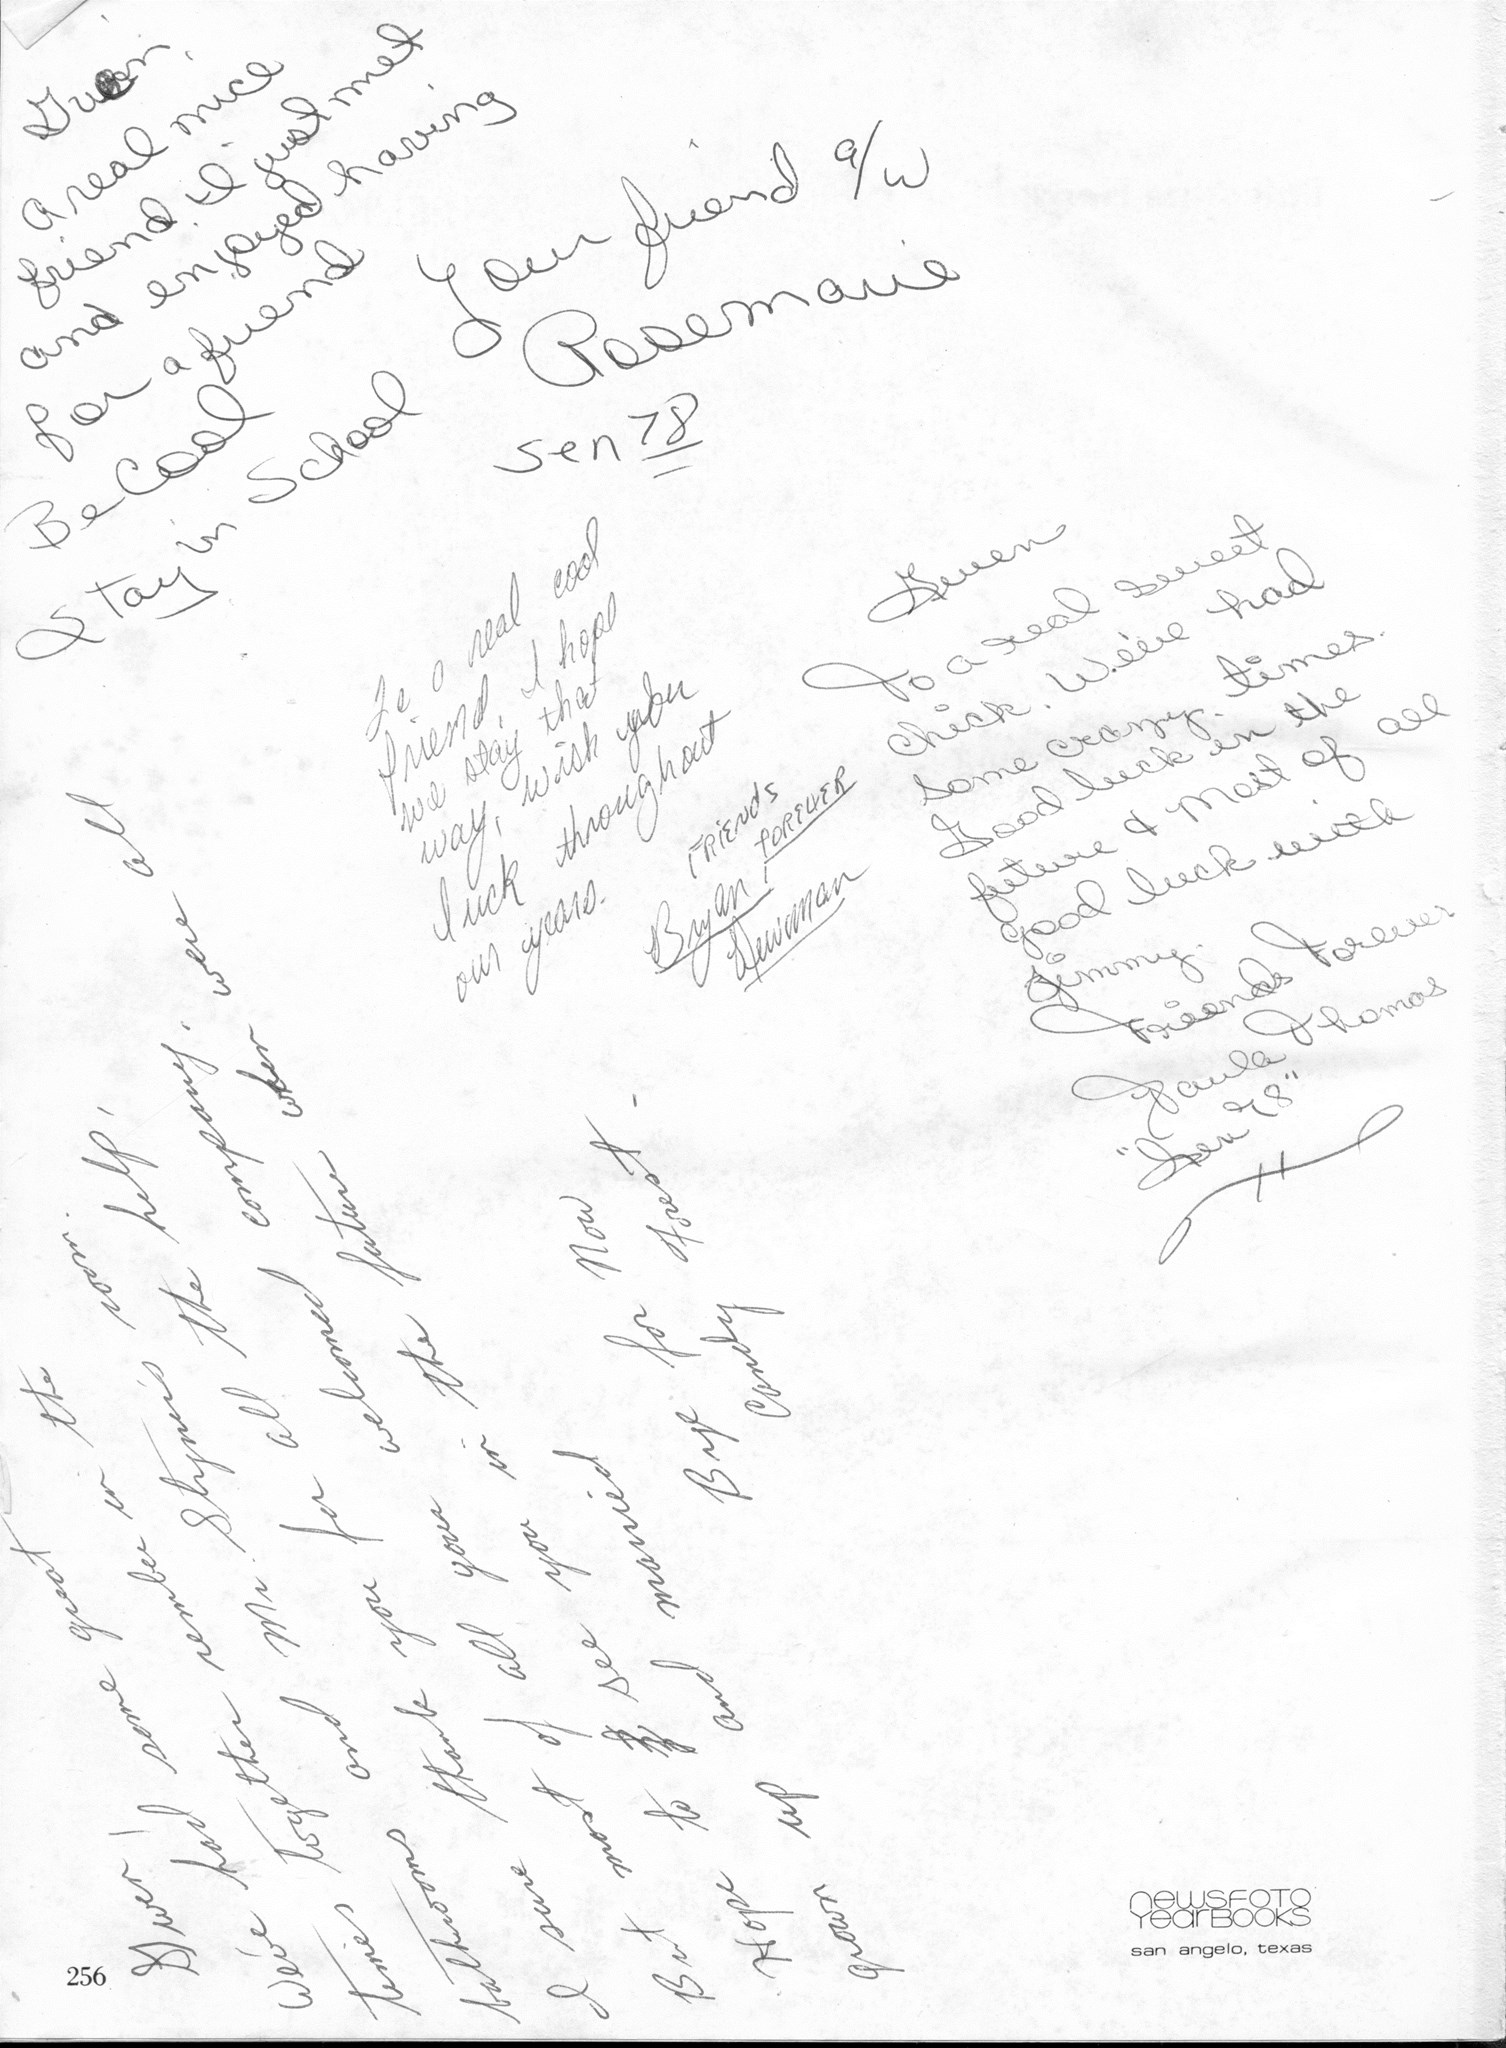 Gwen,
A real nice
friend. I just met
and enjoyed having
for a friend
Be Cool
Stay in School
Your friend a/w
Rosemarie
Sen 78
To a real cool
friend, I hope
we stay that
way, wish you
luck throughout
our years.
FRIENDS
FOREVER
Bryan
Newman
Gwen
To a real sweet
chick. We've had
some crazy times.
Good luck in the
future & most of all
good luck with
Jimmy.
Friends Forever
Paula Thomas
"Sen 78"
Gwen!
We've had some great
times together in the
bathrooms and remember in room.
I sure thank Mr. Stymis help,
But most of you for all the company. were all
Hope to see all you welcomed company when
grown up and married in the future
Bye for Now
Candy Frost.
256
newsfoto
yearbooks
san angelo, texas